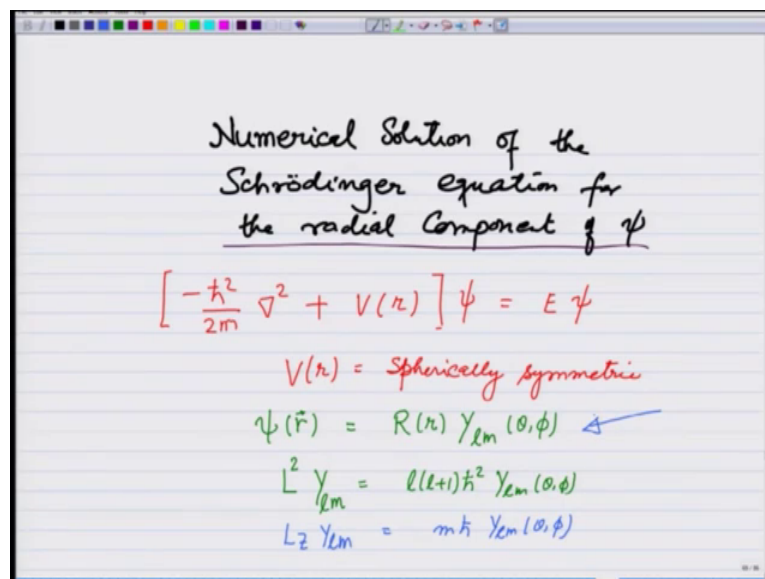 Numerical Solution of the
Schrödinger equation for
the radial Component of ψ
[-ℏ²/2m ∇² + V(r)] ψ = E ψ
V(r) = Spherically symmetric
ψ(r⃗) = R(r) Yₗₘ(θ,φ)
L² Yₗₘ = l(l+1)ℏ² Yₗₘ(θ,φ)
L_z Yₗₘ = mℏ Yₗₘ(θ,φ)